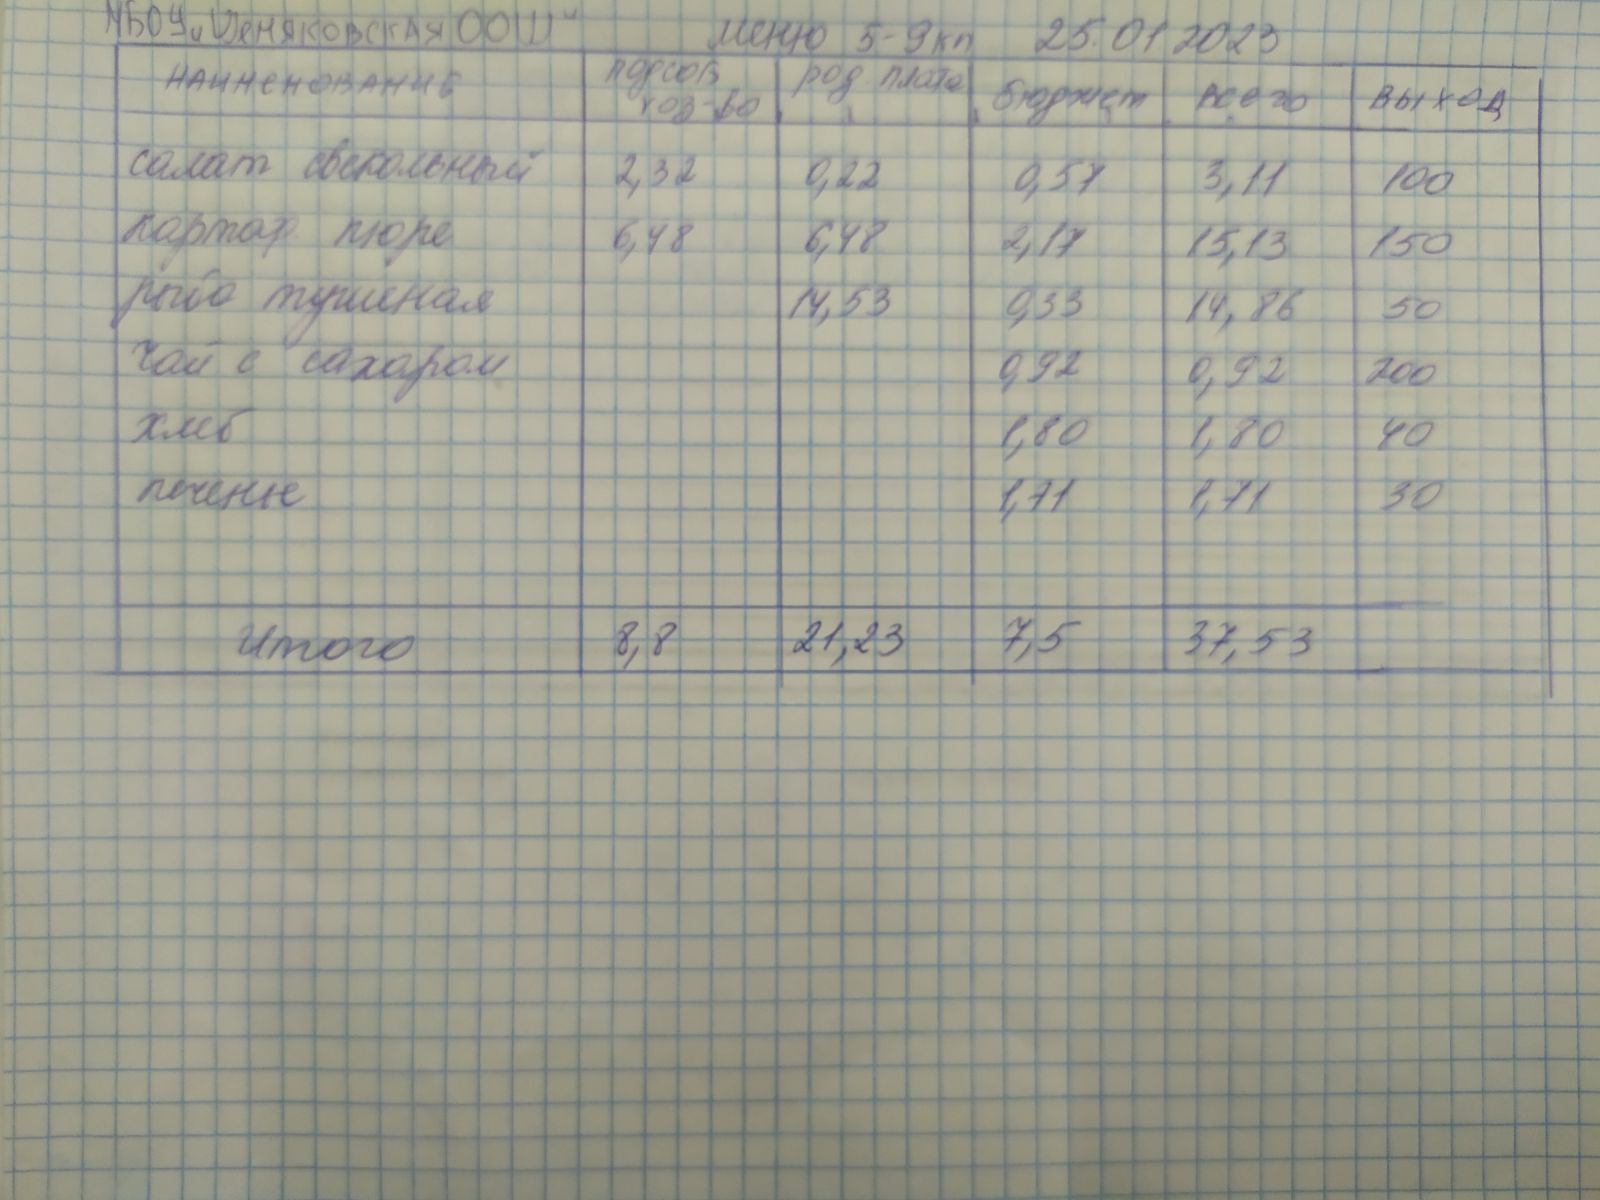 МБОУ "Шеняковская ООШ" меню 5-9 кл 25.01 2023
НАИМЕНОВАНИЕ подсоб хоз-во род. плата бюджет всего выход
салат свекольный 2,32 0,22 0,57 3,11 100
картоф. пюре 6,48 6,48 2,17 15,13 150
рыба тушеная 14,53 0,33 14,86 50
чай с сахаром 0,92 0,92 200
хлеб 1,80 1,80 40
печенье 1,71 1,71 30
Итого 8,8 21,23 7,5 37,53